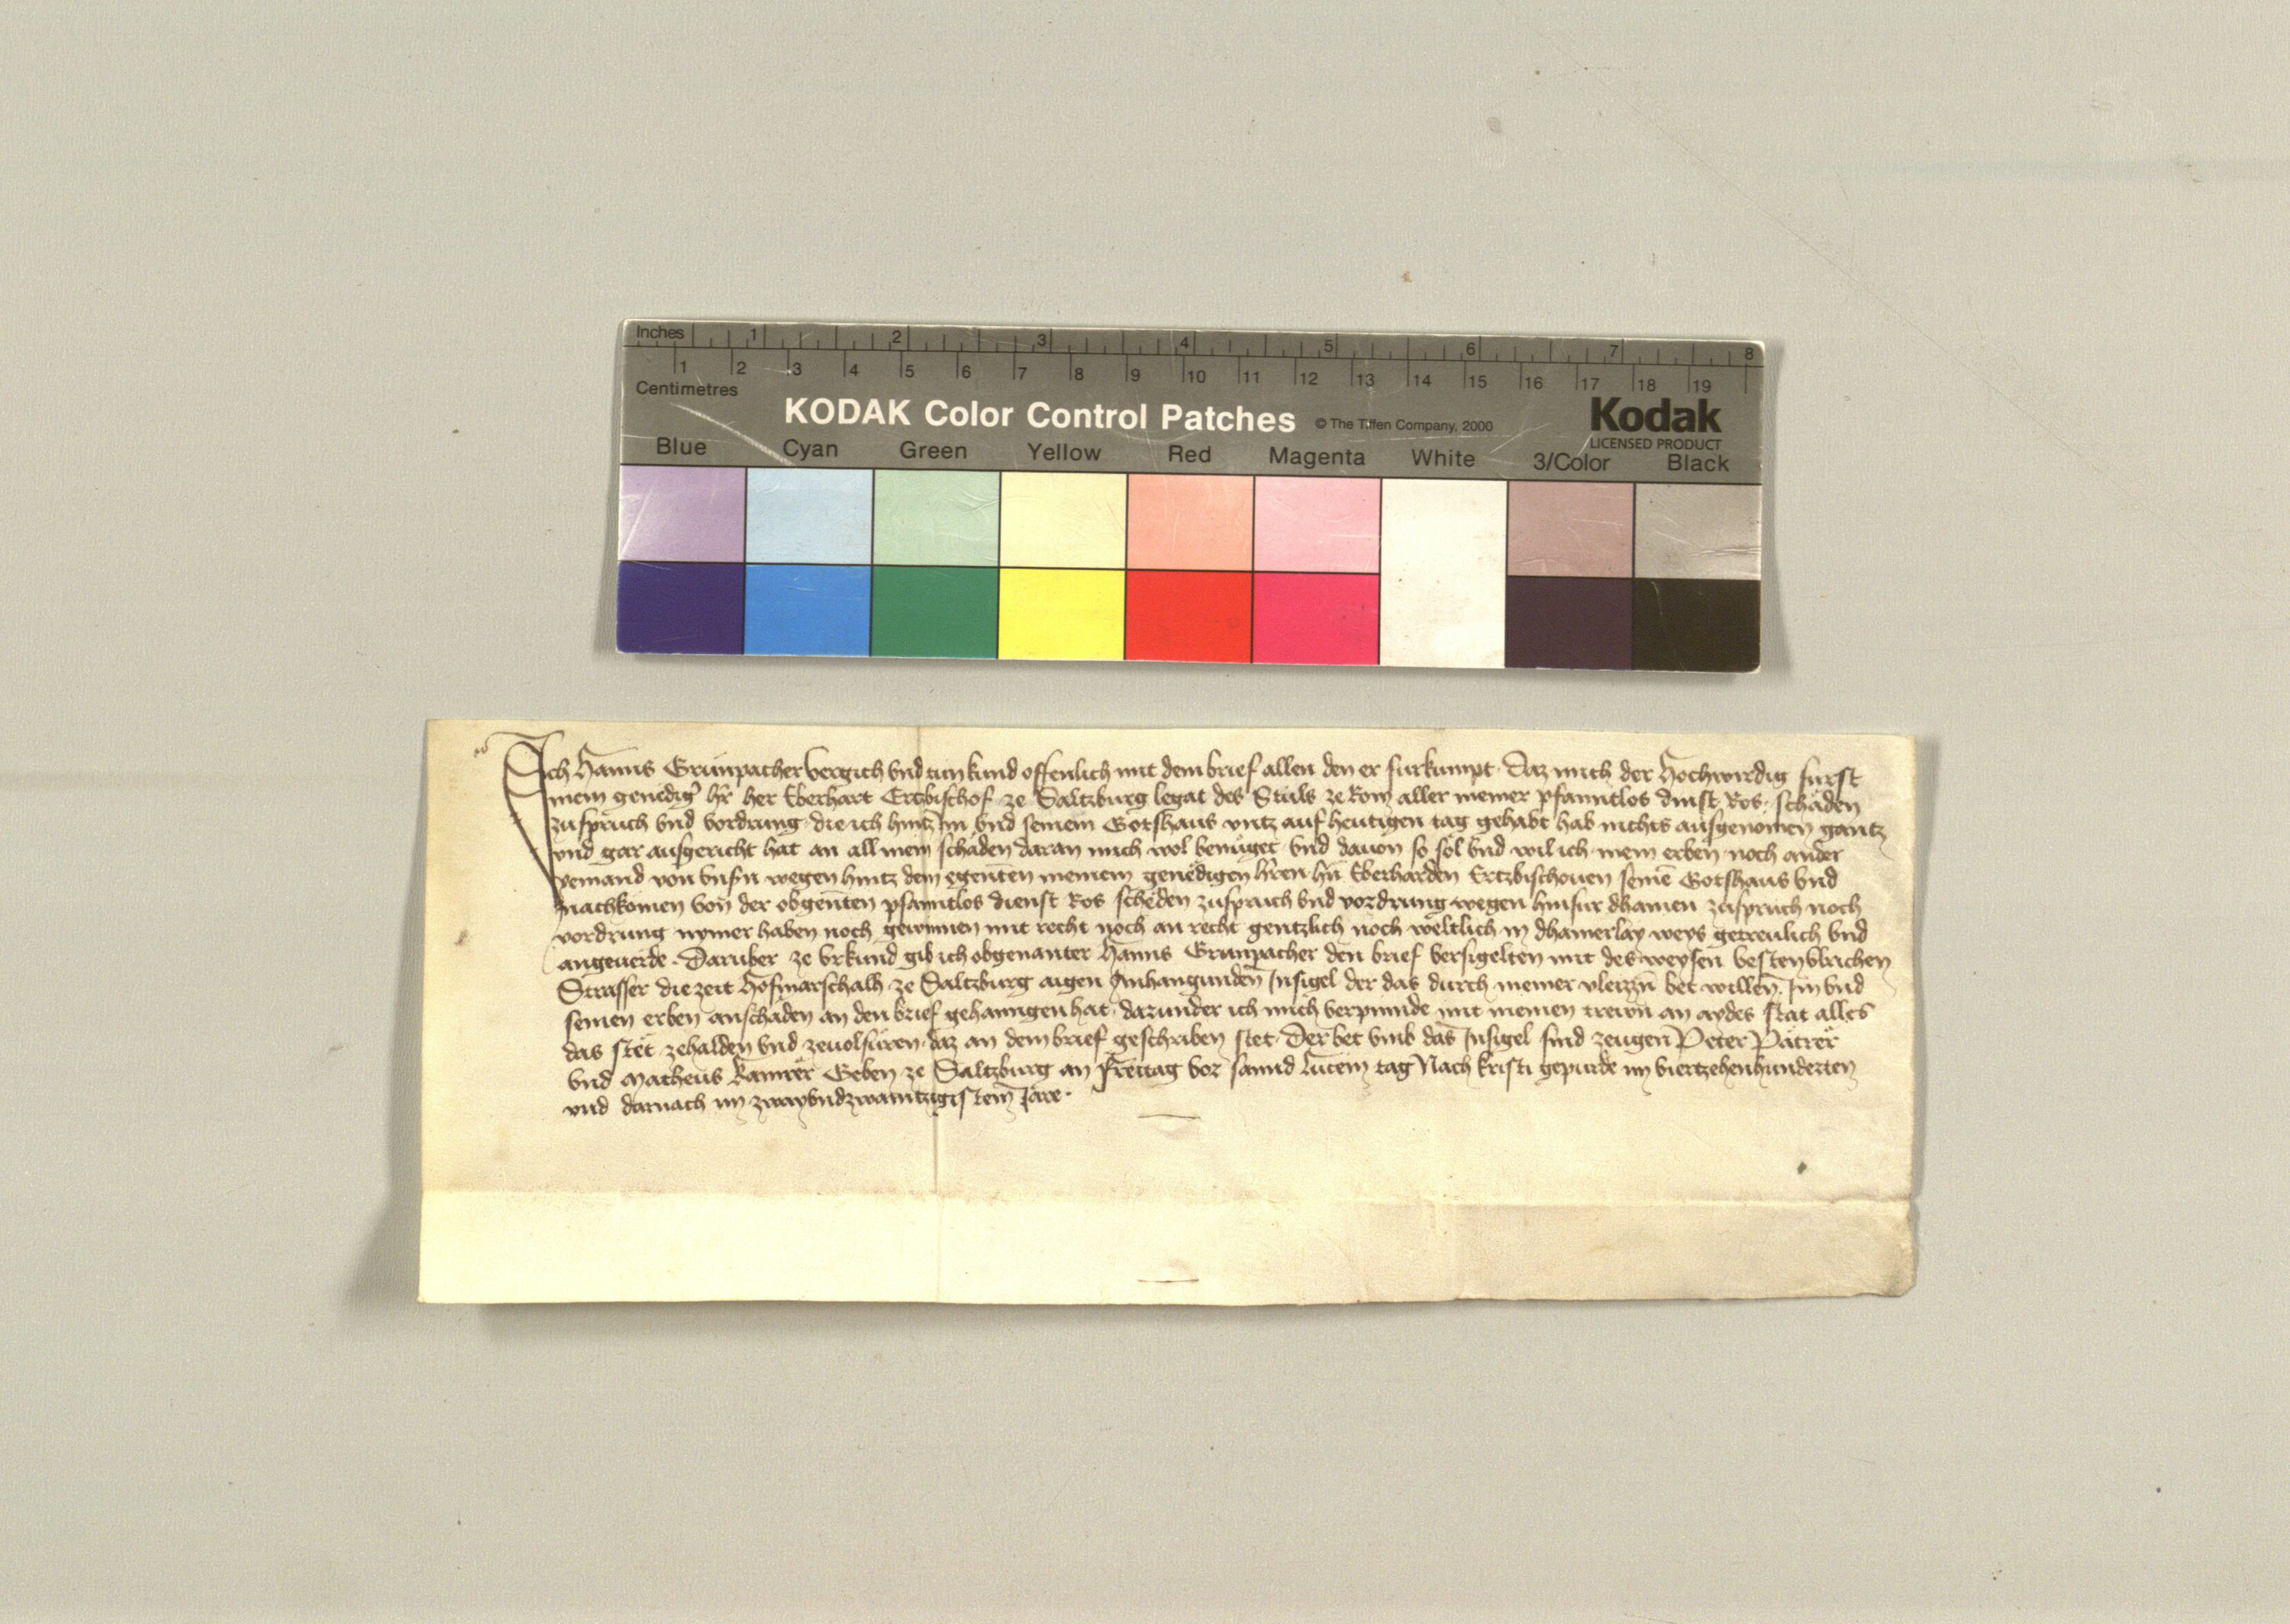 Inches 1 2 3 4 5 6 7 8
1 2 3 4 5 6 7 8 9 10 11 12 13 14 15 16 17 18 19
Centimetres
KODAK Color Control Patches © The Tiffen Company, 2000 Kodak
LICENSED PRODUCT
Blue Cyan Green Yellow Red Magenta White 3/Color Black
Ich Hanns Grünpacher vergich vnd tun kund offenlich mit dem brief allen den er furkumpt. Daz mich der Hochwirdig furst
mein genedig' h'r her Eberhart Ertzbischof ze Saltzburg legat des Stuls ze Rom aller meiner pfanntlos dinst Ros. schäden
zuspruch vnd vordrung die ich hintz im vnd seinem Gotshaus vntz auf heutigen tag gehabt hab nichts ausgenomen gantz
vnd gar ausgericht hat an all mein schäden daran mich wol benüget vnd dauon so sol vnd wil ich mein erben noch ander
yemand von vnsn wegen hintz dem egenten meinem genedigen h'ren hn Eberharden Ertzbischouen seinē Gotshaus vnd
nachkomen von der obgenten pfanntlos dienst Ros schëden zuspruch vnd vordrung wegen hinfur dhainen zuspruch noch
vordrung nymer haben noch gewinnen mit recht noch an recht geistlich noch weltlich in dhainerlay weys getreulich vnd
angeuerde. Daruber ze vrkund gib ich obgenanter Hanns Grunpacher den brief versigelten mit des weysen vesten Vlrichen
Strasser die zeit Hofmarschalh ze Saltzburg aigen Anhangunden Insigel der das durch meiner vleizzn bet willen. Im vnd
seinen erben an schaden an den brief gehanngen hat. darunder ich mich verpinnde mit meinen trewn an aydes stat alles
das stët zehalden vnd zeuolfüren. daz an dem brief geschriben stet. Der bet vmb das Insigel sind zeugen Peter Pätrër
vnd Matheus Ramrër Geben ze Saltzburg an Freitag vor sannd Lucein tag Nach kristi gepurde im viertzehenhundezten
vnd darnach im zwayvndzwaintzigistem Jare.